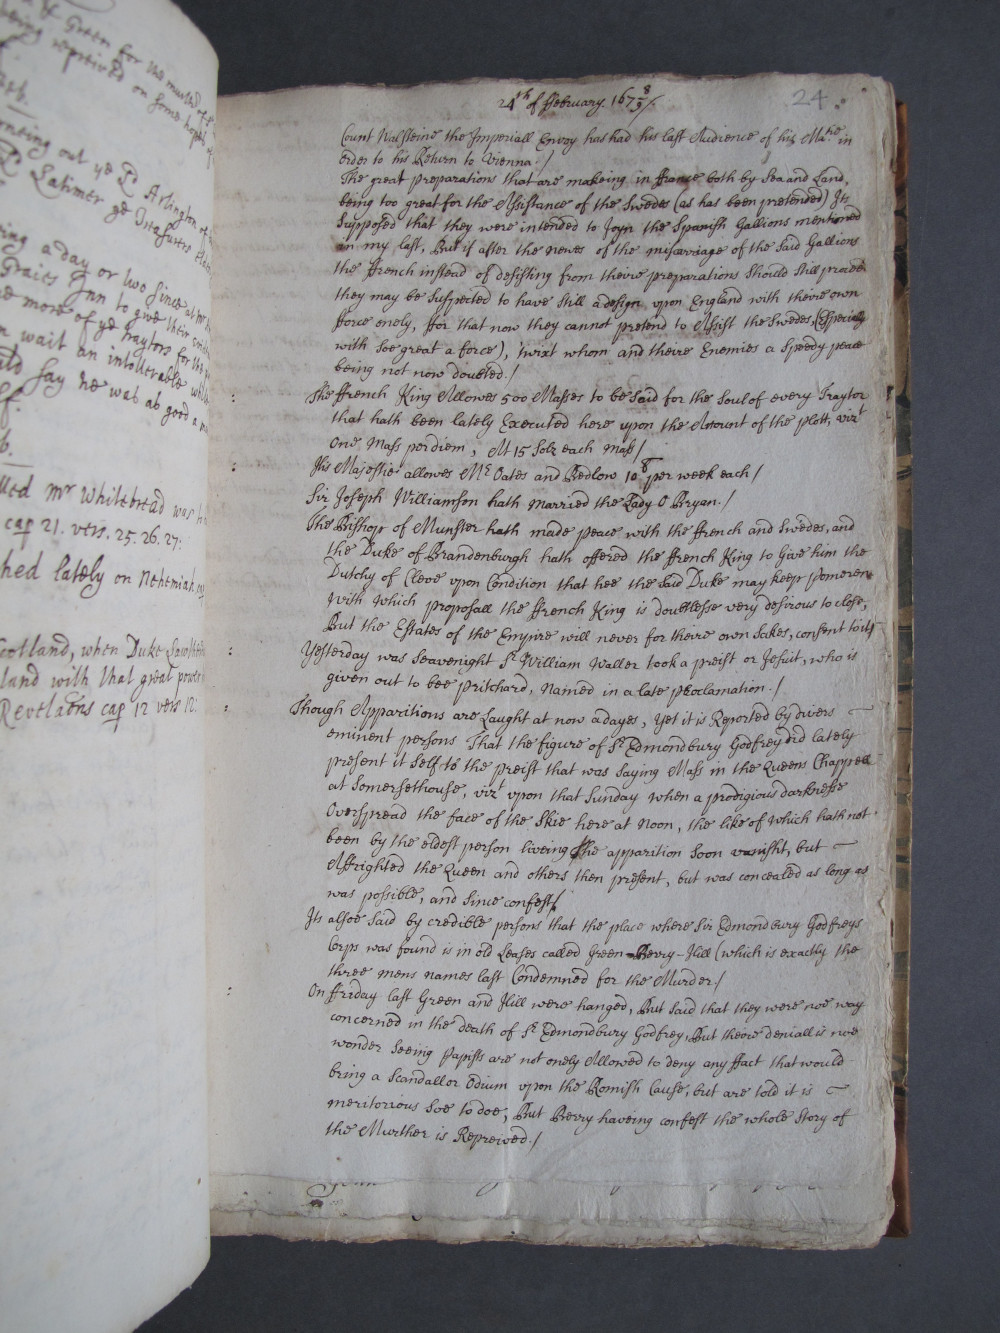 24th of ffebruary 167 8/9 /.
24
Count Walsteine the Imperiall Envoy has had his last Audience of his Matie in
order to his Return to Vienna. /
The great preparations that are makeing in ffrance both by Sea and Land,
being too great for the Assistance of the Swedes (as has been pretended) Its
Supposed that they were intended to Joyn the Spanish Gallions mentioned
in my last, But if after the newes of the miscarriage of the said Gallions
the ffrench instead of desisting from theire preparations should still proceed
they may be Suspected to have still a design upon England with theire own
fforce onely, ffor that now they cannot pretend to Assist the Swedes, (Especially
with soe great a force), twixt whom and theire Enemies a Speedy peace
being not now doubted. /
The ffrench King Allowes 500 Masses to be Said for the Soul of every Traytor
that hath been lately Executed here upon the Account of the plott, vizt
one Mass perdiem, At 15 Solz each Mass /
His Majestie allowes Mr Oates and Bedlow 10 s per week each /
Sir Joseph Williamson hath married the Lady O Bryan. /
The Bishop of Munster hath made peace with the ffrench and Swedes, and
the Duke of Brandenburgh hath offered the ffrench King to Give him the
Dutchy of Cleve upon Condition that hee the said Duke may keep Pomeren
with which proposall the ffrench King is doubtlesse very desirous to close,
But the Estates of the Empire will never for theire own Sakes, consent to it /
Yesterday was Seavenight Sr William Waller took a preist or Jesuit, who is
given out to bee Pritchard, Named in a late Proclamation. /
Though Apparitions are Laught at now adayes, yet it is Reported by divers
eminent persons That the figure of Sr Edmondbury Godfrey did lately
present it Self to the preist that was Saying Mass in the Queens Chappell
at Somersethouse, vizt upon that Sunday when a prodigious darknesse
Overspread the face of the Skie here at Noon, the like of which hath not
been by the eldest person liveing The apparition Soon vanisht, but
Affrighted the Queen and others then present, but was concealed as long as
was possible, and Since confest /
Its alsoe said by credible persons that the place where Sir Edmondbury Godfreys
Corps was found is in old Leases called Green-Berry-Hill (which is exactly the
three mens names last Condemned for the Murder /
On ffriday last Green and Hill were hanged, But said that they were noe way
concerned in the death of Sr Edmondbury Godfrey, But theire deniall is noe
wonder Seeing Papists are not onely Allowed to deny any ffact that would
bring a Scandall or Odium upon the Romish Cause, but are told it is
meritorious Soe to doe; But Berry haveing confest the whole Story of
the Murther is Repreived. /
Green for the murther of
being repreived on some hopes of
turning out ye Ld Arlington of
Ld Latimer ye Treasurers
being a day or two since at
Graies Inn to give their
more of ye Traytors for
wait an intollerable
say he was as good a
Mr Whitebread was
cap 21. vers. 25. 26. 27:
lately on Nehemiah
Scotland, when Duke
land with that great power
Revelations cap 12 vers 12: